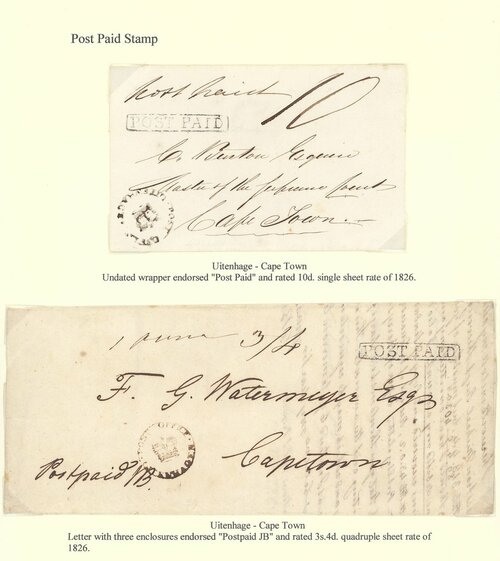 Post Paid Stamp
Post Paid 10
POST PAID
C. Burton Esquire
Master of the Supreme Court
Cape Town.
POST OFFICE
Uitenhage - Cape Town
Undated wrapper endorsed "Post Paid" and rated 10d. single sheet rate of 1826.
3/4
POST PAID
F. G. Watermeyer Esqr
POST OFFICE
Capetown
Postpaid JB.
Uitenhage - Cape Town
Letter with three enclosures endorsed "Postpaid JB" and rated 3s.4d. quadruple sheet rate of
1826.